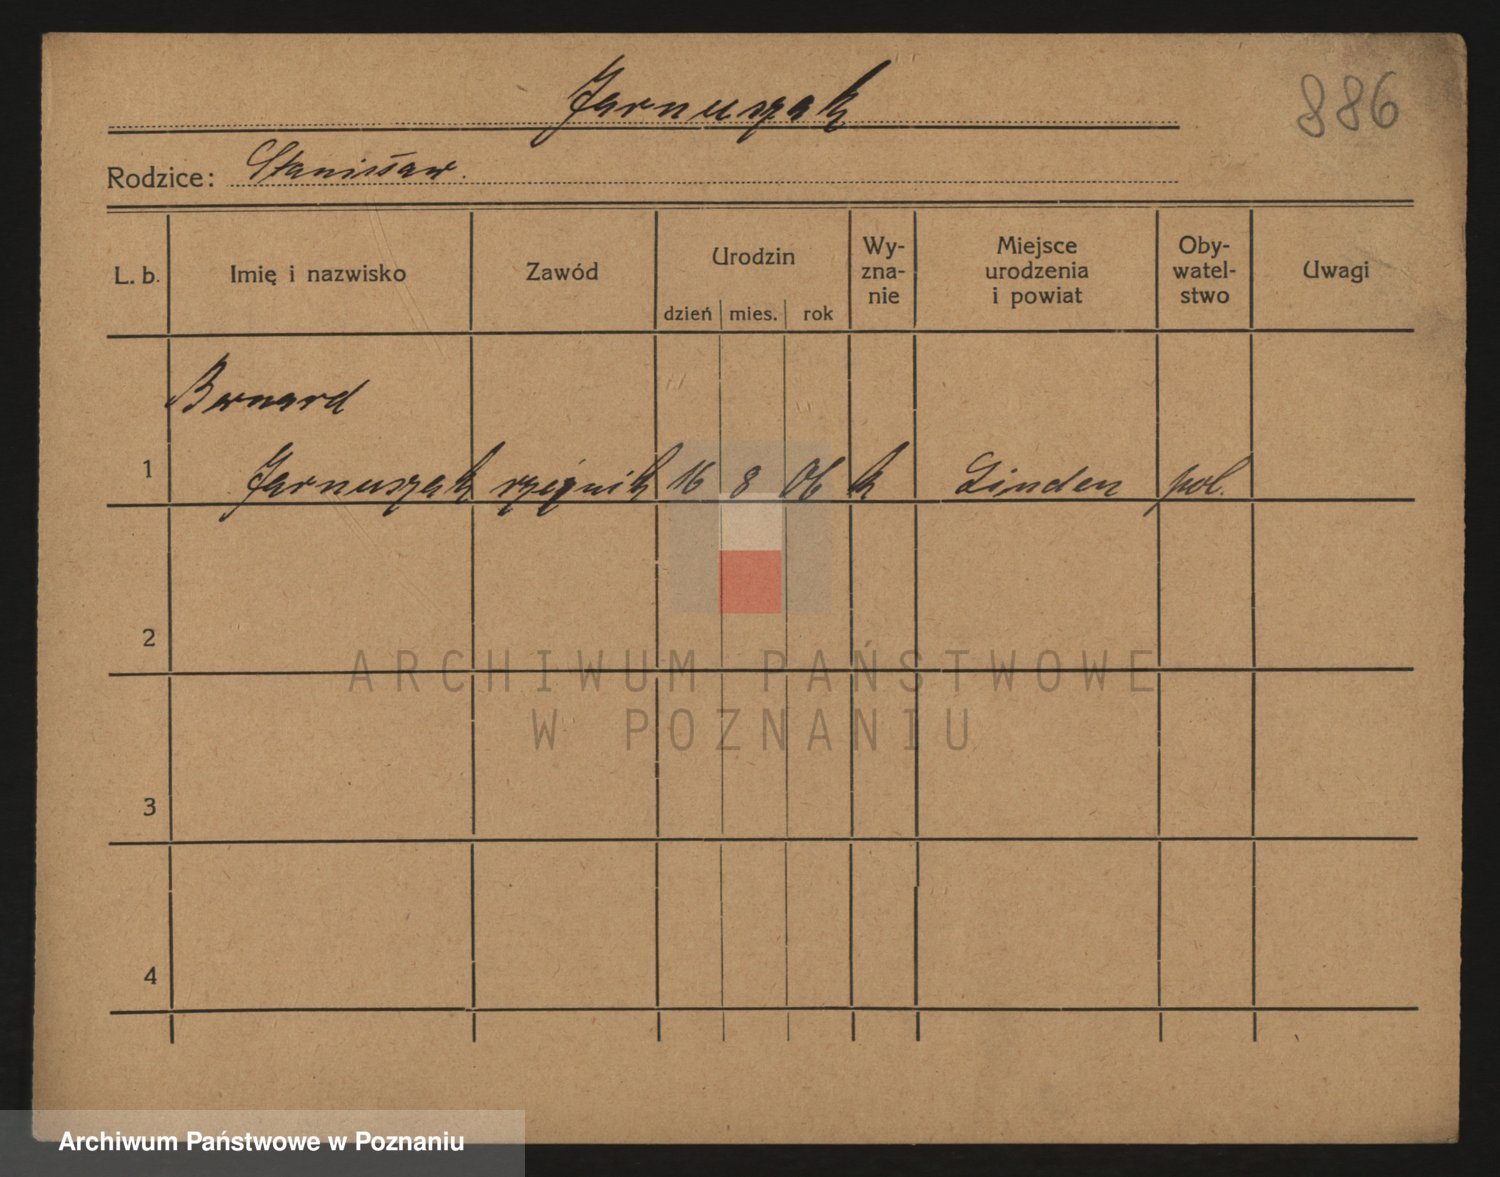 Jarnuszak
886
Rodzice: Stanisław.
L. b. Imię i nazwisko Zawód Urodzin dzień mies. rok Wy-zna-nie Miejsce urodzenia i powiat Oby-watel-stwo Uwagi
Bernard
1 Jarnuszak rzeźnik 16 8 06 k Linden pol.
2
ARCHIWUM PAŃSTWOWE
W POZNANIU
3
4
Archiwum Państwowe w Poznaniu